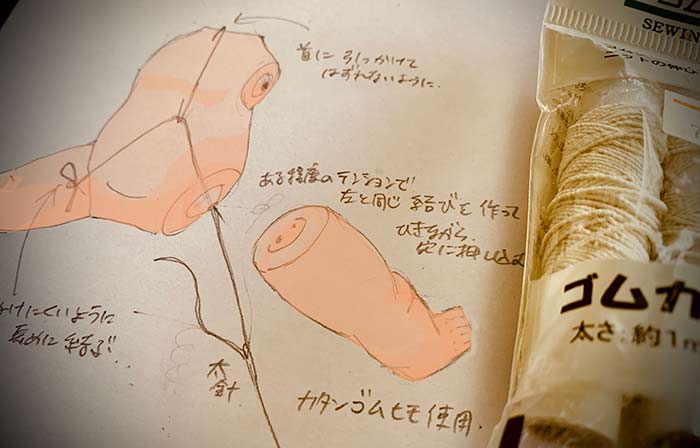 首に引っかけて
はずれないように.
ある程度のテンションで
左と同じ結びを作って
ひきながら、
穴に押し込む
けにくいように
長めに結ぶ!!
木針
カタンゴムヒモ使用.
SEWIN
ゴムカ
太さ:約1m